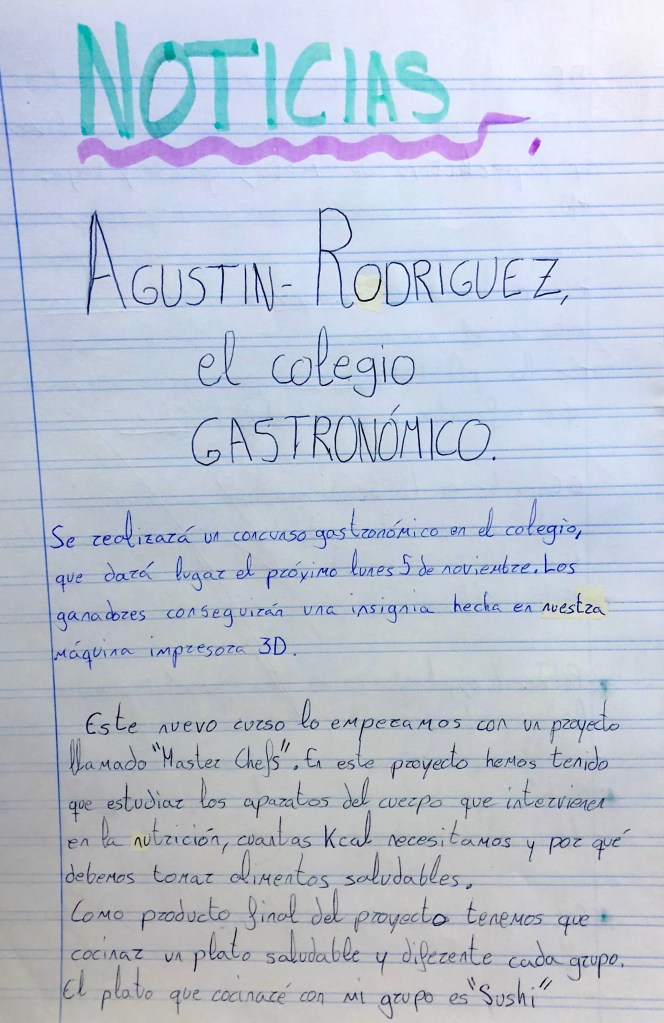 NOTICIAS.
AGUSTIN-RODRIGUEZ,
el colegio
GASTRONÓMICO.
Se realizará un concurso gastronómico en el colegio,
que dará lugar el próximo lunes 5 de noviembre. Los
ganadores conseguirán una insignia hecha en nuestra
máquina impresora 3D.
Este nuevo curso lo empezamos con un proyecto
llamado "Master Chefs". En este proyecto hemos tenido
que estudiar los aparatos del cuerpo que intervienen
en la nutrición, cuantas Kcal necesitamos y por qué
debemos tomar alimentos saludables.
Como producto final del proyecto tenemos que
cocinar un plato saludable y diferente cada grupo.
El plato que cocinaré con mi grupo es "Sushi"